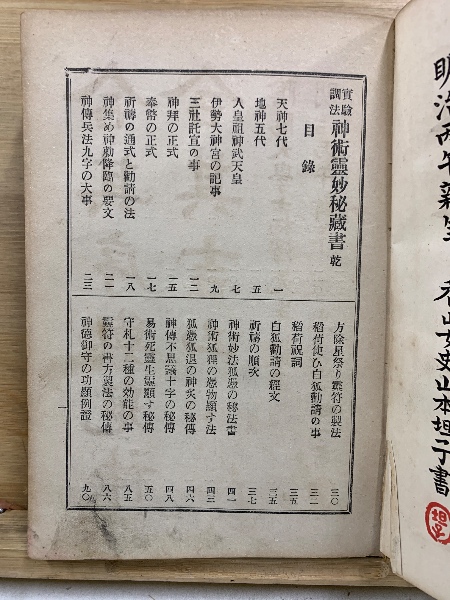 明治丙午新年
山本坦子書
實驗調法 神術靈妙秘藏書 乾
目錄
天神七代 一
地神五代 五
人皇祖神武天皇 七
伊勢大神宮の記事 九
三社託宣の事 一二
神拜の正式 一五
奉幣の正式 一七
祈禱の通式と勸請の法 一八
神集め神勅降臨の要文 二一
神傳兵法九字の大事 二三
方除星祭り靈符の製法 三〇
稻荷使ひ白狐勸請の事 三一
稻荷祝詞 三五
白狐勸請の經文 三五
祈禱の順次 三七
神術妙法狐憑の秘法書 四一
神術狐狸の憑物顯す法 四三
狐憑狐退の神炙の秘傳 四六
神傳不思議十字の秘傳 四八
易術死靈生靈顯す秘傳 五〇
守札十二種の効能の事 八五
靈符の書方製法の秘傳 八六
神德御守の功顯例證 九〇
一